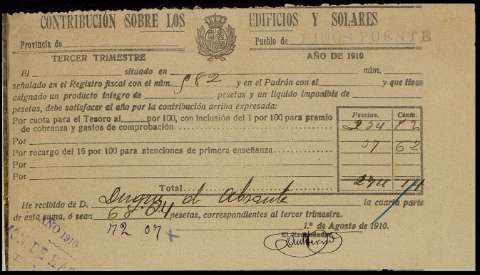 CONTRIBUCIÓN SOBRE LOS EDIFICIOS Y SOLARES
Provincia de Pueblo de PINOS PUENTE
TERCER TRIMESTRE AÑO DE 1910
El situado en núm.
señalado en el Registro fiscal con el núm. 982 y en el Padrón con el y que tiene
asignado un producto íntegro de pesetas y un líquido imponible de
pesetas, debe satisfacer al año por la contribución arriba expresada:
Pesetas. Cénts.
Por cuota para el Tesoro al por 100, con inclusión del 1 por 100 para premio
de cobranza y gastos de comprobación 234
Por
Por recargo del 16 por 100 para atenciones de primera enseñanza 37 62
Por
Total
He recibido de D. Duque d Abrante la cuarta parte
de esta suma, ó sean 68 04 pesetas, correspondientes al tercer trimestre.
72 07 x
1.º de Agosto de 1910.
AÑO 1910